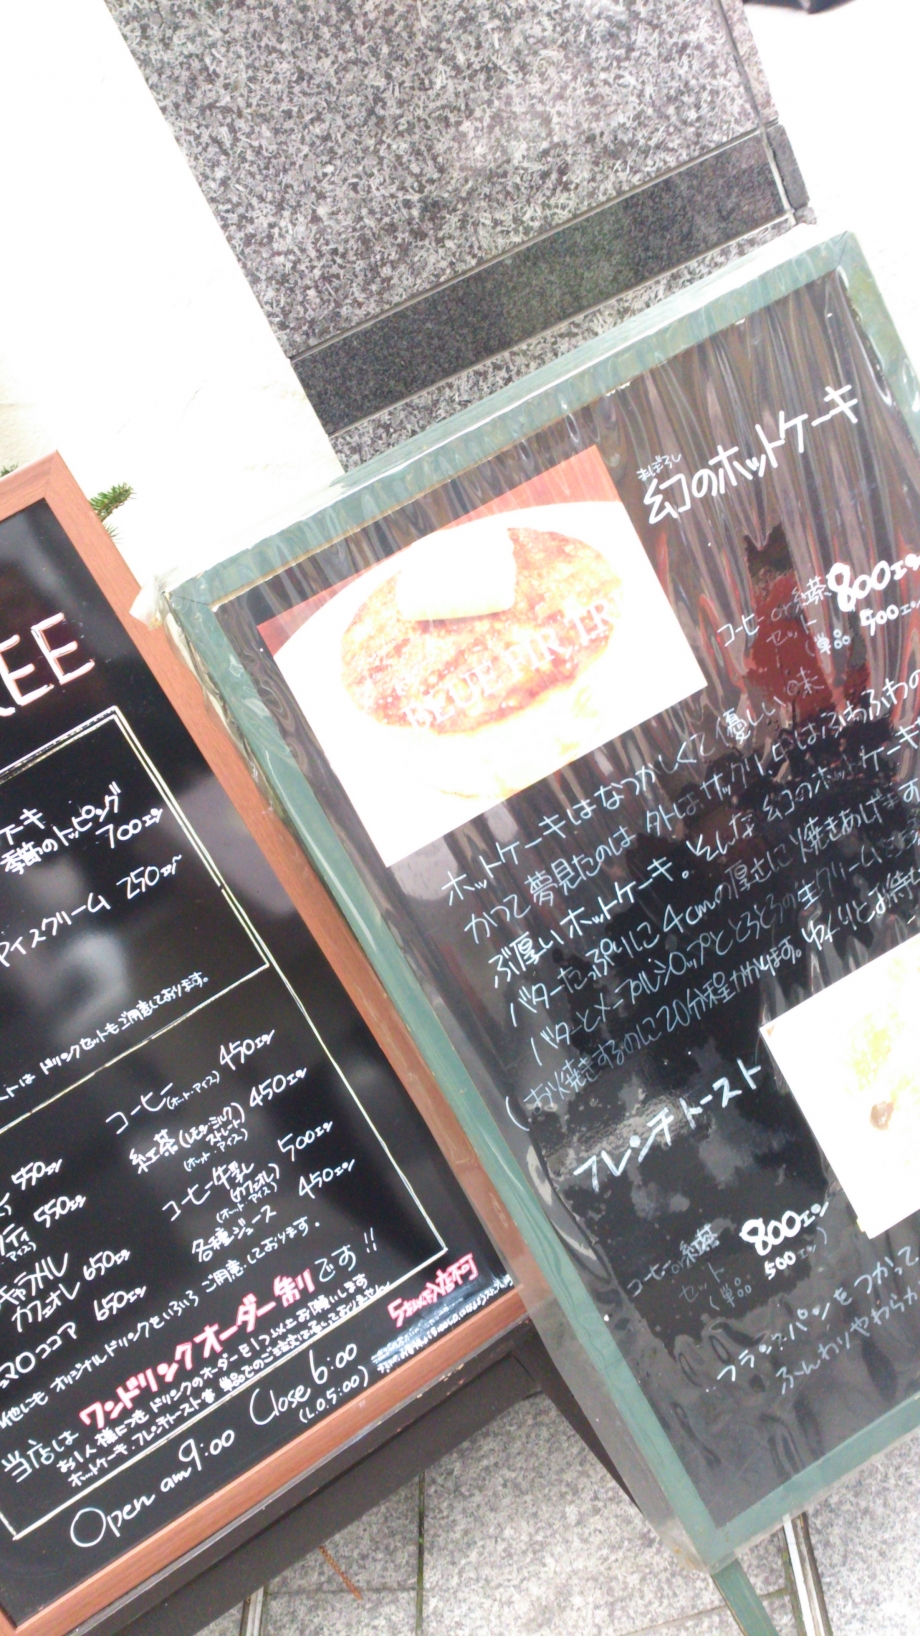 EE
ケーキ
季節のトッピング
700エン
アイスクリーム 250エン
ドリンクセットもご用意しております。
コーヒー 450エン
(ホット・アイス)
紅茶 (レモン・ミルク 450エン
ストレート)
(ホット・アイス)
コーヒー牛乳 500エン
(カフェオレ)
(ホット・アイス)
各種ジュース 450エン
550エン
550エン
キャラメル
カフェオレ 650エン
マロココア 650エン
他にも オリジナルドリンクをいろいろ ご用意しております。
当店は ワンドリンクオーダー制です!!
お1人様につき ドリンクのオーダーを1つ以上お願いします
ホットケーキ・フレンチトースト等 単品でのご注文は承っておりません
Open am 9:00 Close 6:00
(L.O.5:00)
まぼろし
幻のホットケーキ
コーヒー or 紅茶 800エン
セット
(単品 500エン
BLUE FIR TR
ホットケーキはなつかしくて優しい味
かつて夢見たのは 外はサックリ 中はふわふわの
ぶ厚いホットケーキ。そんな幻のホットケーキ
バターたっぷりに4cmの厚さに焼きあげます
バターとメープルシロップととろとろの生クリーム
(お火焼きするのに20分程かかります。ゆっくりとお待ち
フレンチトースト
コーヒーor紅茶 800エン
セット
(単品 500エン)
フランスパンをつかって
ふんわりやわらか